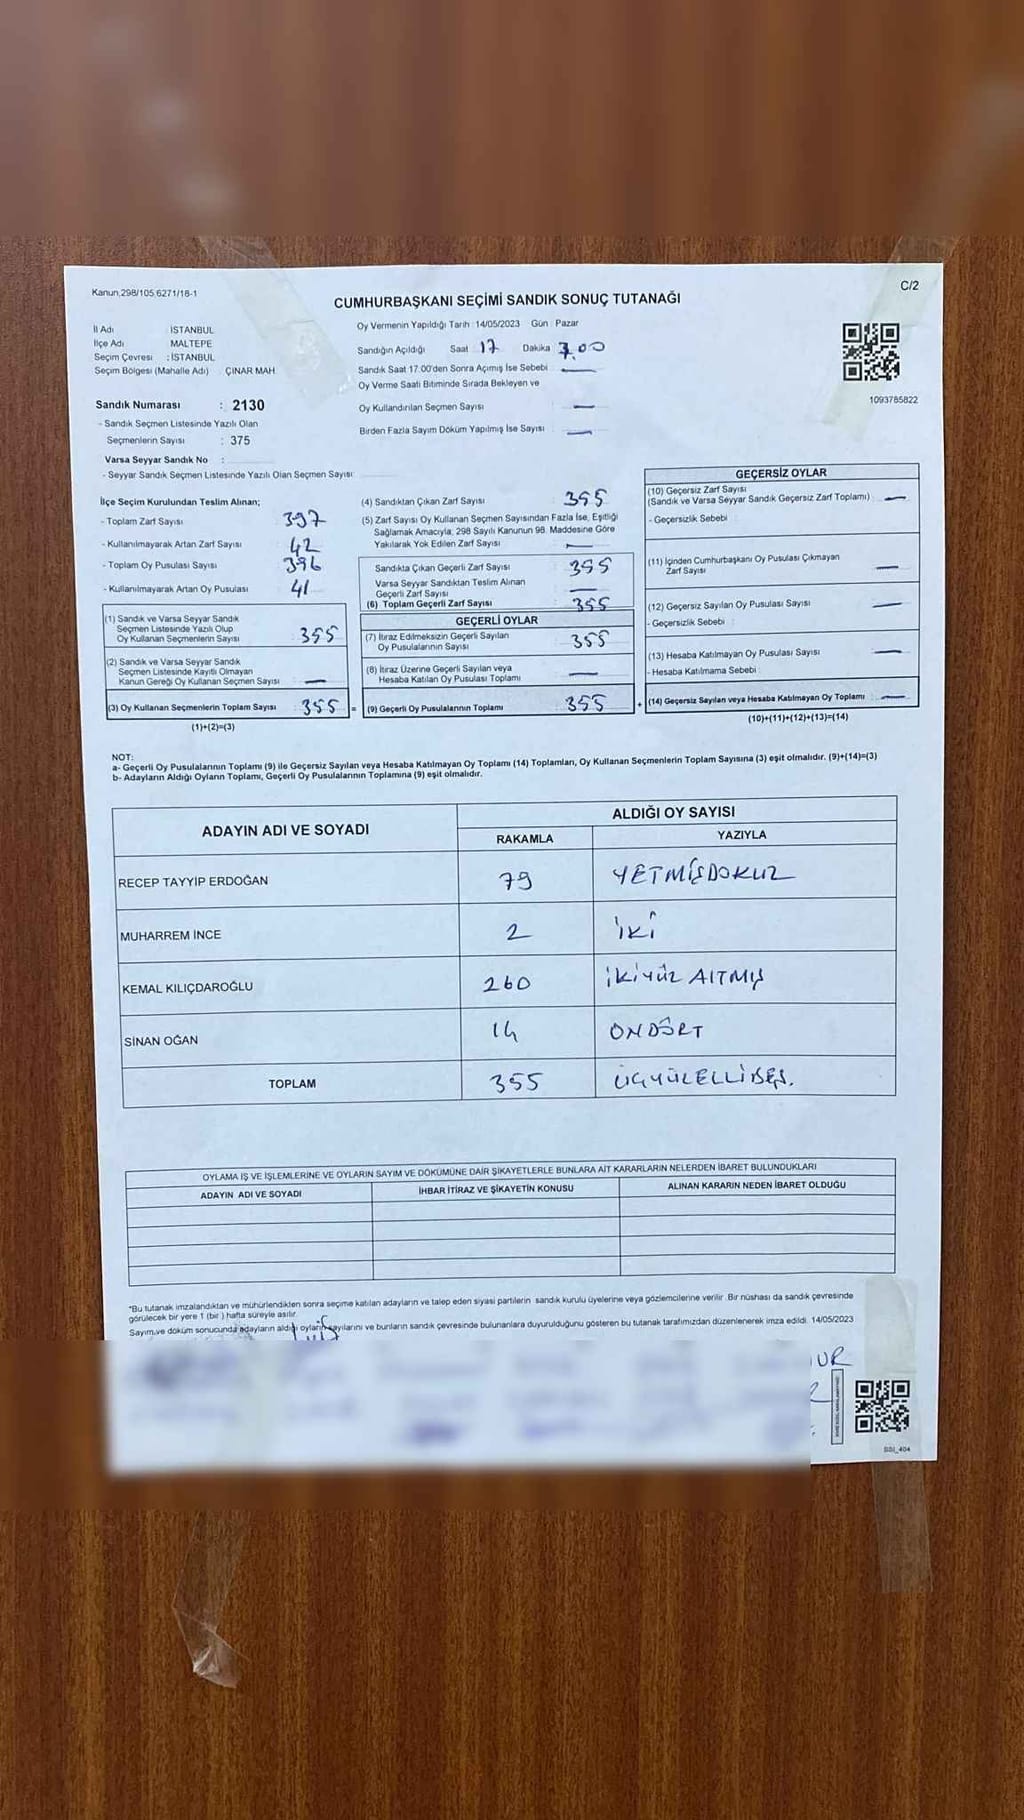 Kanun,298/105,6271/18-1
C/2
CUMHURBAŞKANI SEÇİMİ SANDIK SONUÇ TUTANAĞI
İl Adı : İSTANBUL
İlçe Adı : MALTEPE
Seçim Çevresi : İSTANBUL
Seçim Bölgesi (Mahalle Adı) : ÇINAR MAH.
Oy Vermenin Yapıldığı Tarih : 14/05/2023 Gün : Pazar
Sandığın Açıldığı Saat 17 Dakika
Sandık Saat 17:00'den Sonra Açımış İse Sebebi —
Oy Verme Saati Bitiminde Sırada Bekleyen ve
Oy Kullandırılan Seçmen Sayısı —
Birden Fazla Sayım Döküm Yapılmış İse Sayısı —
1093785822
Sandık Numarası : 2130
- Sandık Seçmen Listesinde Yazılı Olan
Seçmenlerin Sayısı : 375
Varsa Seyyar Sandık No :
- Seyyar Sandık Seçmen Listesinde Yazılı Olan Seçmen Sayısı:
İlçe Seçim Kurulundan Teslim Alınan;
- Toplam Zarf Sayısı 397
- Kullanılmayarak Artan Zarf Sayısı 42
- Toplam Oy Pusulası Sayısı 396
- Kullanılmayarak Artan Oy Pusulası 41
(1) Sandık ve Varsa Seyyar Sandık
Seçmen Listesinde Yazılı Olup
Oy Kullanan Seçmenlerin Sayısı 355
(2) Sandık ve Varsa Seyyar Sandık
Seçmen Listesinde Kayıtlı Olmayan
Kanun Gereği Oy Kullanan Seçmen Sayısı —
(3) Oy Kullanan Seçmenlerin Toplam Sayısı 355 =
(1)+(2)=(3)
(4) Sandıktan Çıkan Zarf Sayısı 355
(5) Zarf Sayısı Oy Kullanan Seçmen Sayısından Fazla İse, Eşitliği
Sağlamak Amacıyla; 298 Sayılı Kanunun 98. Maddesine Göre
Yakılarak Yok Edilen Zarf Sayısı —
Sandıkta Çıkan Geçerli Zarf Sayısı 355
Varsa Seyyar Sandıktan Teslim Alınan
Geçerli Zarf Sayısı —
(6) Toplam Geçerli Zarf Sayısı 355
GEÇERLİ OYLAR
(7) İtiraz Edilmeksizin Geçerli Sayılan
Oy Pusulalarının Sayısı 355
(8) İtiraz Üzerine Geçerli Sayılan veya
Hesaba Katılan Oy Pusulası Toplamı —
(9) Geçerli Oy Pusulalarının Toplamı 355 +
GEÇERSİZ OYLAR
(10) Geçersiz Zarf Sayısı
(Sandık ve Varsa Seyyar Sandık Geçersiz Zarf Toplamı) —
- Geçersizlik Sebebi :
(11) İçinden Cumhurbaşkanı Oy Pusulası Çıkmayan
Zarf Sayısı —
(12) Geçersiz Sayılan Oy Pusulası Sayısı —
- Geçersizlik Sebebi :
(13) Hesaba Katılmayan Oy Pusulası Sayısı —
- Hesaba Katılmama Sebebi :
(14) Geçersiz Sayılan veya Hesaba Katılmayan Oy Toplamı : —
(10)+(11)+(12)+(13)=(14)
NOT:
a- Geçerli Oy Pusulalarının Toplamı (9) ile Geçersiz Sayılan veya Hesaba Katılmayan Oy Toplamı (14) Toplamları, Oy Kullanan Seçmenlerin Toplam Sayısına (3) eşit olmalıdır. (9)+(14)=(3)
b- Adayların Aldığı Oyların Toplamı, Geçerli Oy Pusulalarının Toplamına (9) eşit olmalıdır.
ADAYIN ADI VE SOYADI
ALDIĞI OY SAYISI
RAKAMLA YAZIYLA
RECEP TAYYİP ERDOĞAN 79 YETMİŞDOKUZ
MUHARREM İNCE 2 İKİ
KEMAL KILIÇDAROĞLU 260 İKİYÜZ ALTMIŞ
SİNAN OĞAN 14 ONDÖRT
TOPLAM 355 ÜÇYÜZELLİBEŞ.
OYLAMA İŞ VE İŞLEMLERİNE VE OYLARIN SAYIM VE DÖKÜMÜNE DAİR ŞİKAYETLERLE BUNLARA AİT KARARLARIN NELERDEN İBARET BULUNDUKLARI
ADAYIN ADI VE SOYADI İHBAR İTİRAZ VE ŞİKAYETİN KONUSU ALINAN KARARIN NEDEN İBARET OLDUĞU
*Bu tutanak imzalandıktan ve mühürlendikten sonra seçime katılan adayların ve talep eden siyasi partilerin sandık kurulu üyelerine veya gözlemcilerine verilir. Bir nüshası da sandık çevresinde
görülecek bir yere 1 (bir) hafta süreyle asılır.
Sayım ve döküm sonucunda adayların aldığı oyların sayılarını ve bunların sandık çevresinde bulunanlara duyurulduğunu gösteren bu tutanak tarafımızdan düzenlenerek imza edildi. 14/05/2023
UR